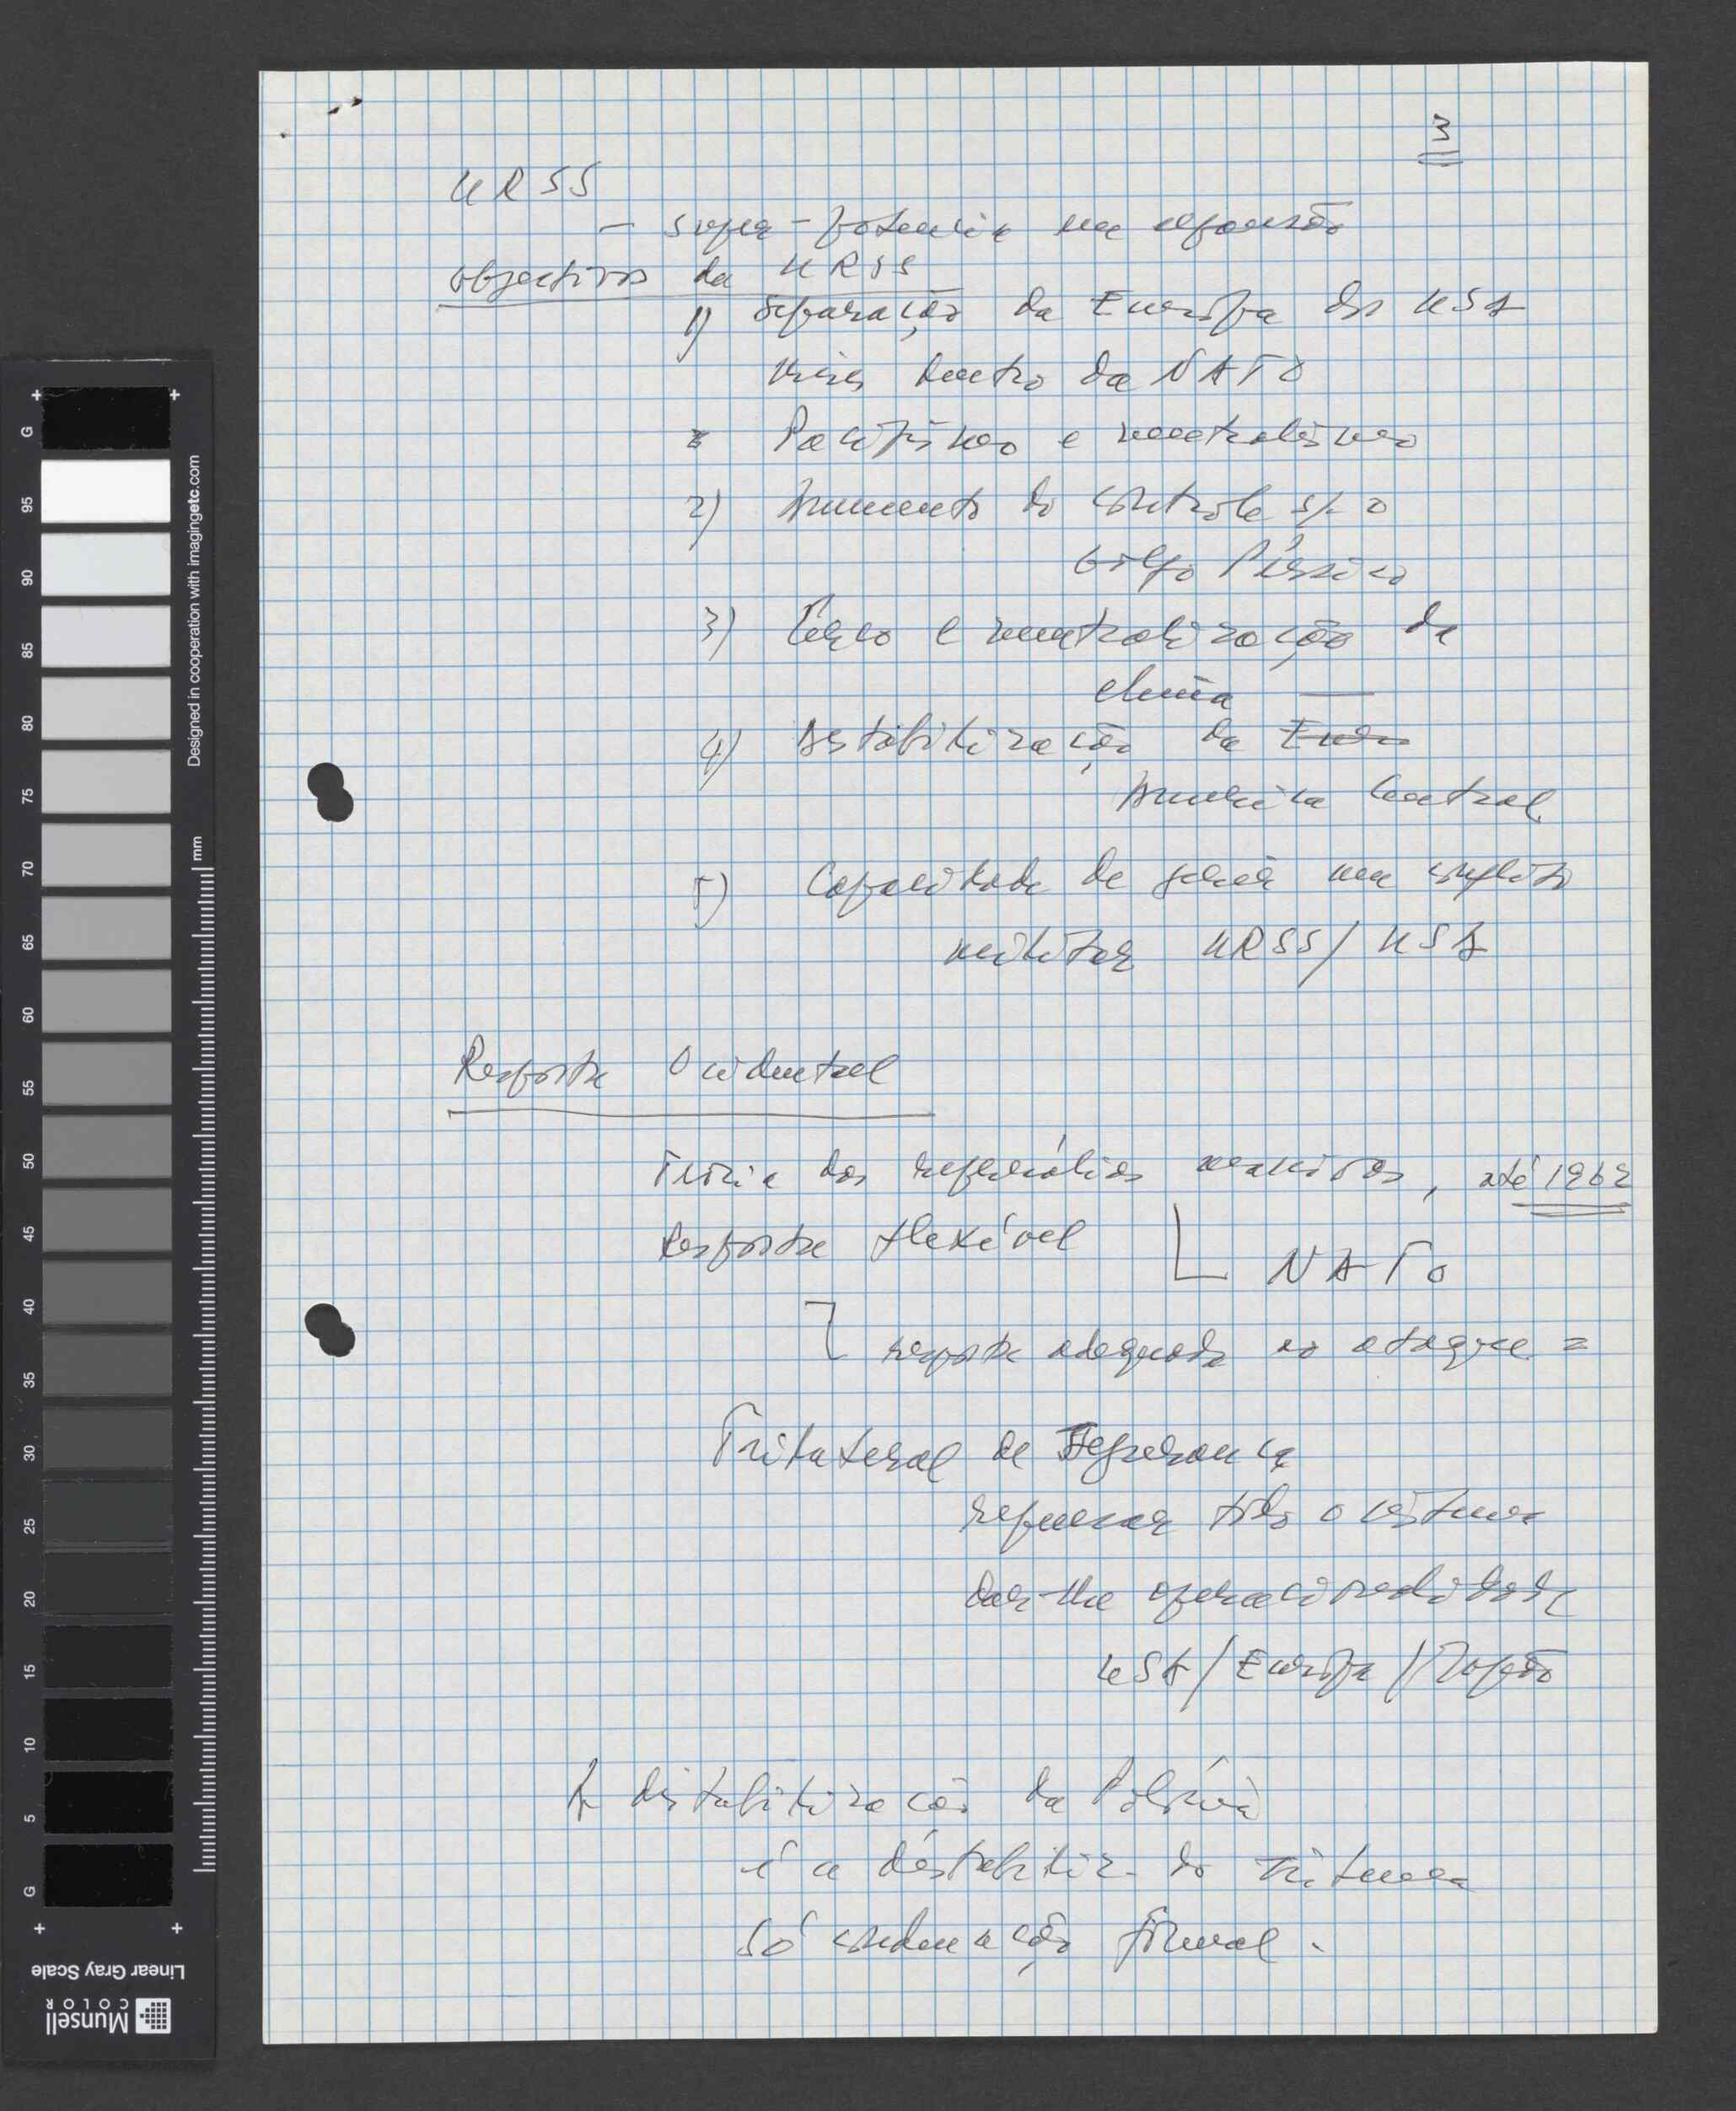 3
URSS
- super-potencia em expansão
objectivos da URSS
1) Separação da Europa dos USA
crise dentro da NATO
Pacifismo e neutralismo
2) Aumento do controle s/ o
Golfo Pérsico
3) Cerco e neutralização da
China —
4) Destabilização da Euro
America Central
5) Capacidade de gerir um conflito
militar URSS/USA
Resposta Ocidental
Teoria das represálias massivas, até 1962
Resposta flexível
NATO
resposta adequada ao ataque =
Trilateral de Segurança
repensar todo o sistema
dar-lhe operacionalidade
USA/Europa/Japão
A destabilização da Polónia
é a destabiliz. do sistema
Só condenação formal.
Designed in cooperation with imagingetc.com
mm
G
95
90
85
80
75
70
65
60
55
50
45
40
35
30
25
20
15
10
5
G
Linear Gray Scale
Munsell
COLOR